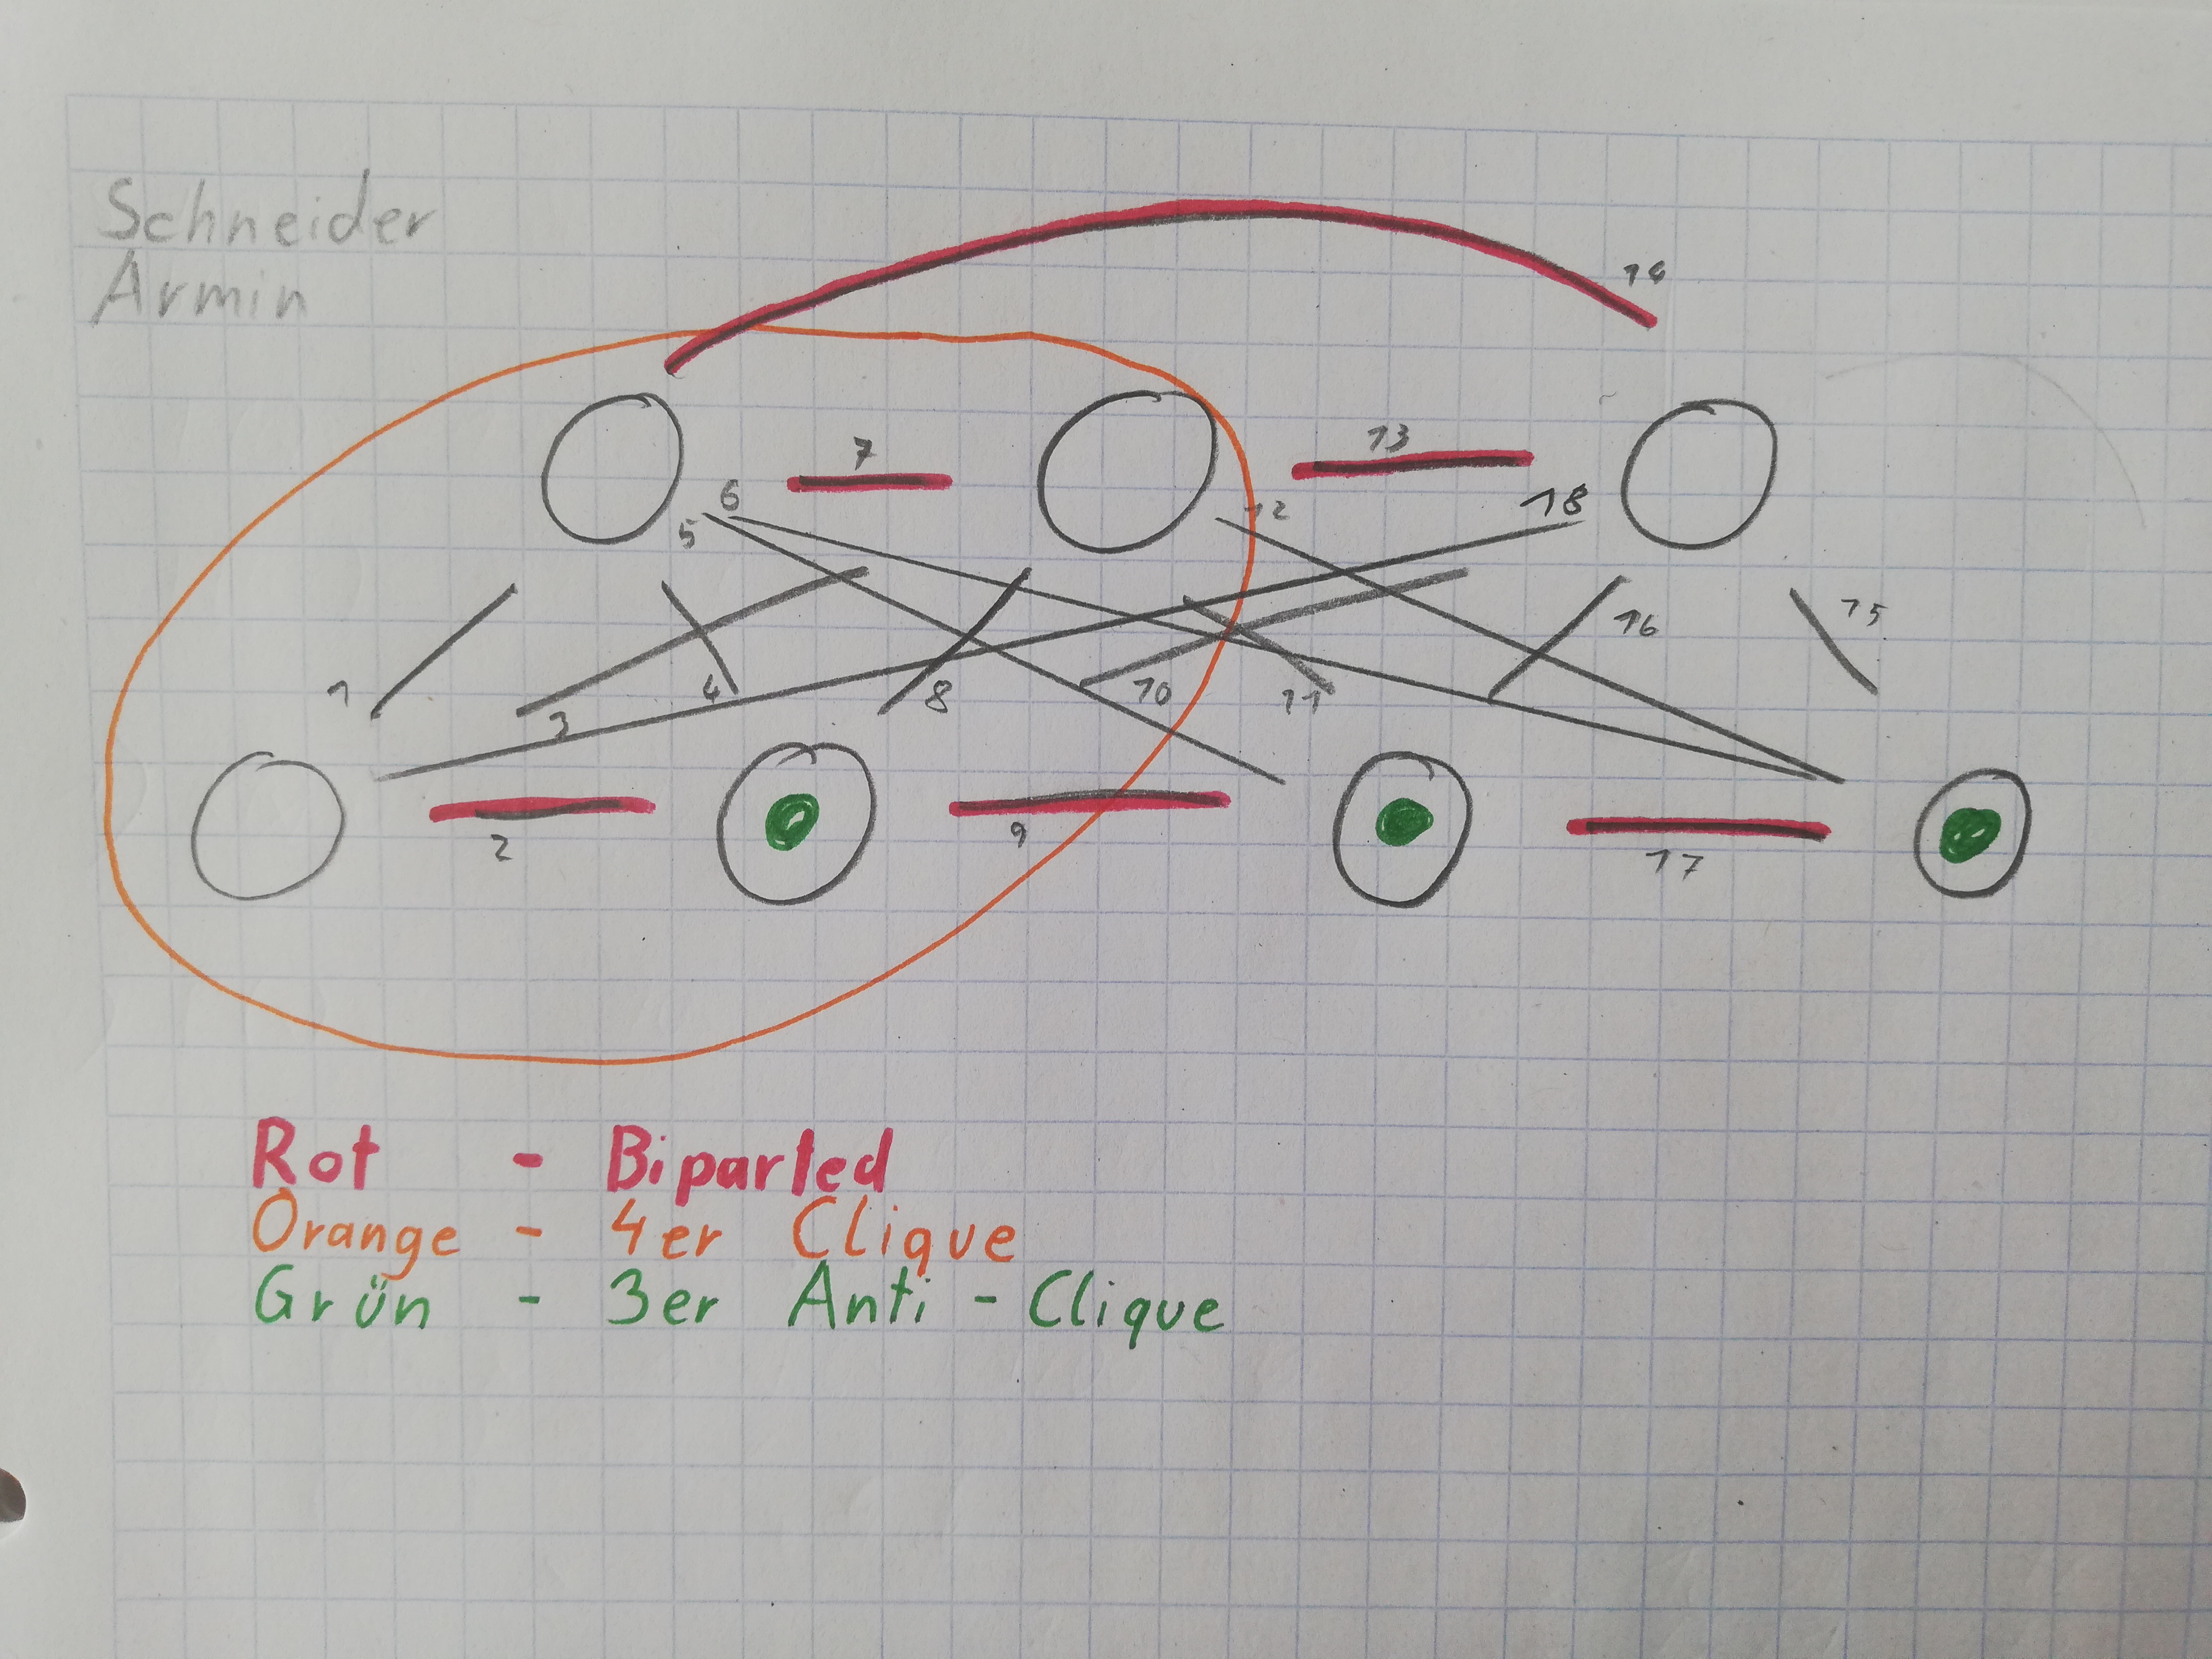 Schneider
Armin
14
7
13
6
5
12
18
1
3
4
8
10
11
16
15
2
9
17
Rot - Biparted
Orange - 4er Clique
Grün - 3er Anti-Clique